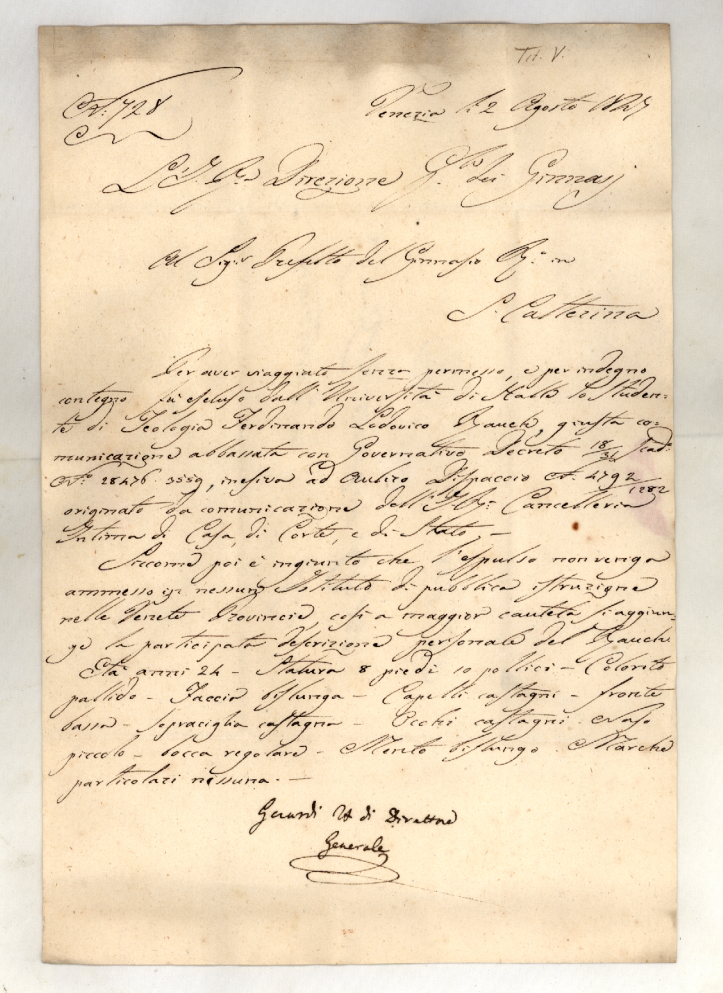 Tit. V.
N.° 728
Venezia li 2 Agosto 1827
L'I. R. Direzione G.le dei Ginnasj
Al Sig.r Prefetto del Ginnasio R.° in
S. Catterina
Per aver viaggiato senza permesso, e per indegno
contegno fu escluso dall'Università di Halla lo Studen-
te di Teologia Ferdinando Lodovico Rauch, giusta co-
municazione abbassata con Governativo Decreto 18/ scad.
N.° 28476. 3559, inesiva ad Aulico Dispaccio N. 4792/1282
originato da comunicazione dell'I. R. Cancelleria
Intima di Casa, di Corte, e di Stato, -
Siccome poi è ingiunto che l'espulso non venga
ammesso in nessuno Istituto di pubblica istruzione
nelle Venete Provincie, così a maggior cautela si aggiun-
ge la participata descrizione personale del Rauch
Età anni 24 - Statura 8 piedi 10 pollici - Colorito
pallido - Faccia bislunga - Capelli castagni - fronte
bassa - sopraciglia castagna - Occhi castagni. Naso
piccolo - bocca regolare - Mento bislungo. Marche
particolari nessuna. -
di Direttore
Generale